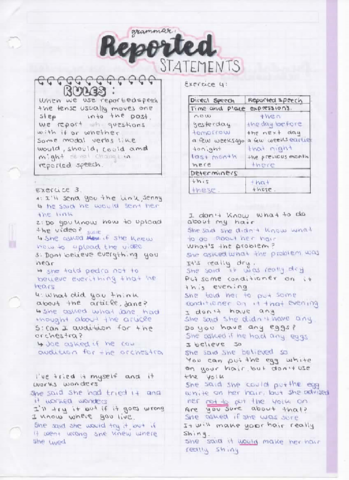 grammar:
Reported
STATEMENTS
RULES:
When we use reported speech
the tense usually moves one
step into the past
we report questions
with if or whether
Some modal verbs like
would, should, could and
might
reported speech.
Exercise 3.
1: I'll send you the link, Jenny
↳ he said he would sent her
the link
2: Do you know how to upload
the video?
↳ She asked if she knew
how to upload the video
3. Dont believe everything you
hear
↳ she told pedro not to
believe everything that he
hears
4: what did you think
about the article, jane?
↳ She asked what Jane had
thought about the article
5: Can I audition for the
orchestra?
↳ Joe asked if he
audition for the orchestra
I've tried it myself and it
works wonders
She said she had tried it and
it worked wonders
I'll try it but if it goes wrong
I know where you live.
She said she would try it but if
it went wrong she knew where
she lived
Exercise 4:
Direct speech Reported speech
Time and place expressions
now then
yesterday the day before
tomorrow the next day
a few weeks ago a few weeks earlier
tonight that night
last month the previous month
here there
Determiners
this that
these those
I don't know what to do
about my hair
She said she didn't know what
to do about her hair
What's the problem?
She asked what the problem was
It's really dry.
She said it was really dry
Put some conditioner on it
this evening
She told her to put some
conditioner on it that evening
I don't have any
She said she didn't have any
Do you have any eggs?
She asked if he had any eggs
I believe so
She said she believed so
You can put the egg white
on your hair but don't use
the yolk
She said she could put the egg
white on her hair, but she advised
her not to put the yolk on
Are you sure about that?
She asked if she was sure
It will make your hair really
shing.
She said it would make her hair
really shing